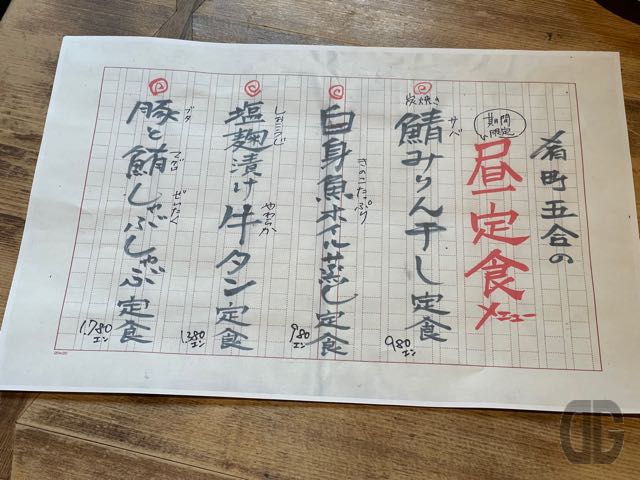 肴町五合の
期間
限定
昼定食メニュー
炭焼き
サバ
鯖みりん干し定食
980
エン
きのこたっぷり
白身魚ホイル蒸し定食
980
エン
しおこうじ
やわらか
塩麹漬け牛タン定食
1,380
エン
ブタ
マグロ
ぜいたく
豚と鮪しゃぶしゃぶ定食
1,780
エン
DG